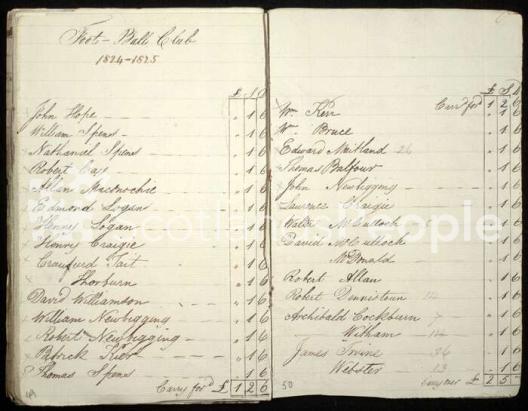 Foot-Ball Club
1824-1825
£ S D
John Hope - " 1 6
William Spens - " 1 6
Nathaniel Spens " 1 6
Robert Cay " 1 6
Allan Maconochie " 1 6
Edmond Logan " 1 6
Henry Logan " 1 6
Henry Craigie " 1 6
Craufurd Tait " 1 6
Thorburn " 1 6
David Williamson " 1 6
William Newbigging " 1 6
Robert Newbigging - " 1 6
Patrick Kerr " 1 6
Thomas Spens " 1 6
Carry for'd £ 1 2 6
49
£ S D
Carr'd for'd 1 2 6
Wm Kerr " 1 6
Wm Bruce " 1 6
Edward Maitland 26 " 1 6
Thomas Balfour " 1 6
John Newbigging " 1 6
Laurence Craigie " 1 6
Walter McCulloch " 1 6
David McCulloch " 1 6
McDonald " 1 6
Robert Allan " 1 6
Robert Dennistoun " 1 6
Archibald Cockburn 7 " 1 6
Witham " 1 6
James Irvine 36 " 1 6
Webster - 13 " 1 6
50
Carry over £ 2 5 -
Scotland's People